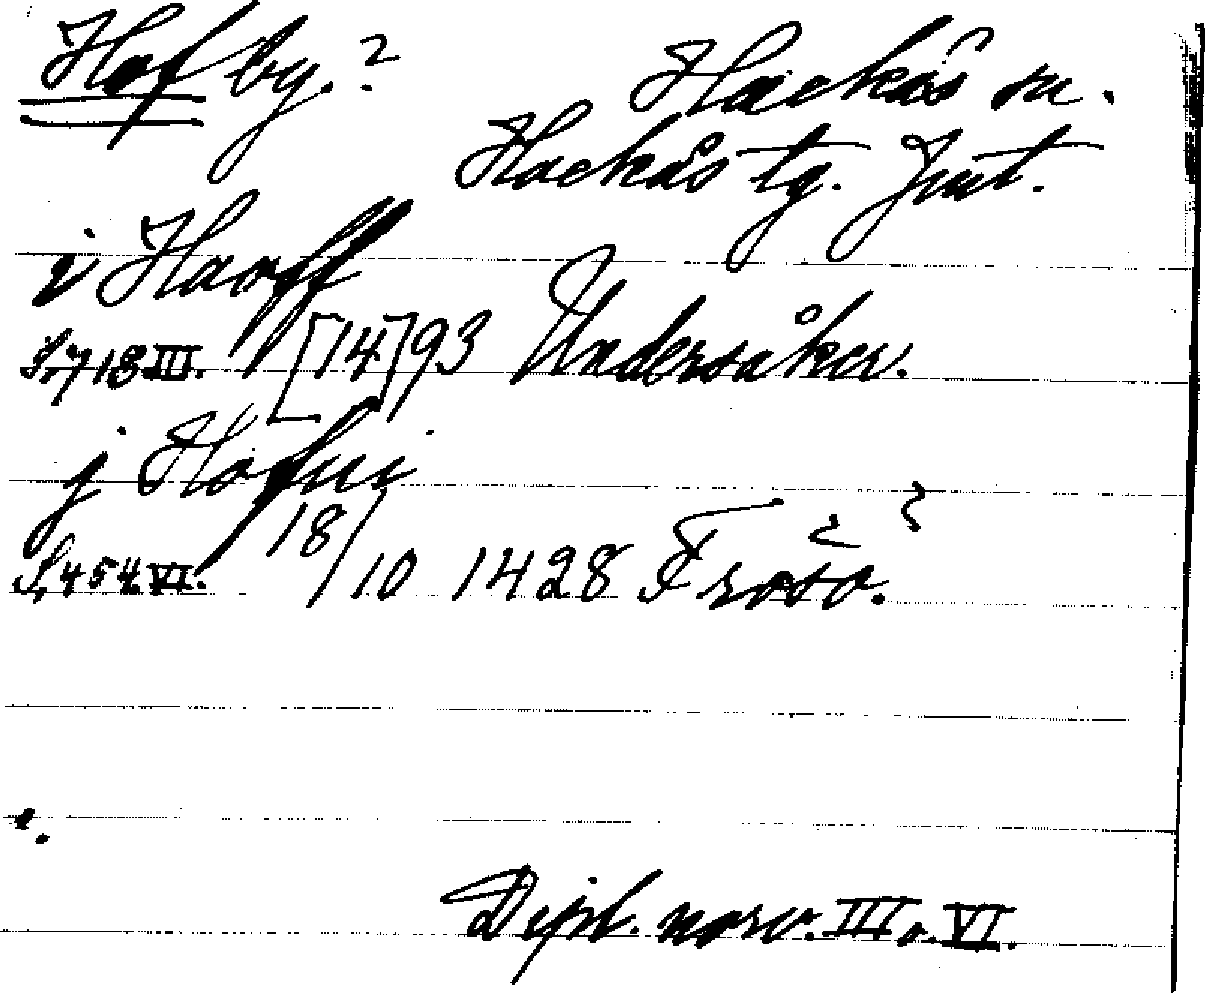 Hof by.? Hackås sn.
Hackås tg. Jmt.
i Haoff
S. 718 III. [14]93 Undersåker.
j Hofui
S. 454 VI. 18/10 1428 Frösö.?
Dipl. norv. III o. VI.